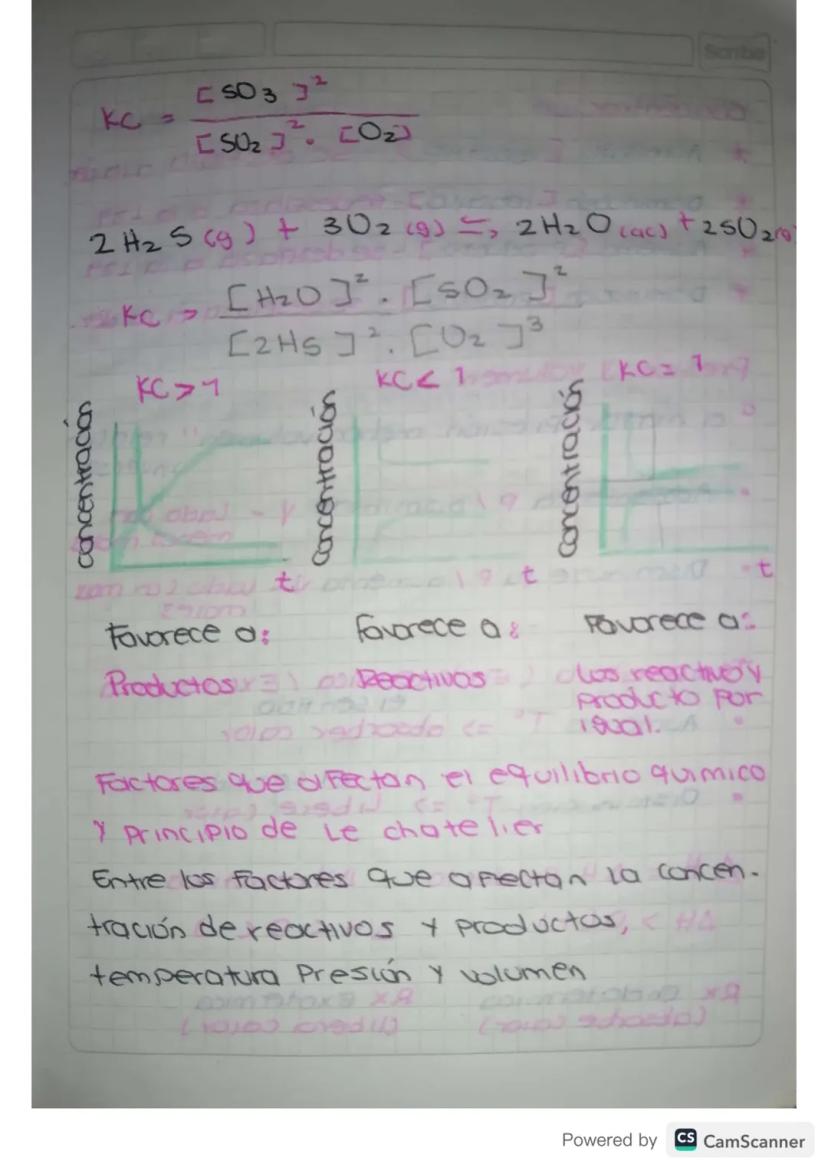 Scribe
KC = [SO3]² / [SO2]². [O2]
2H2S(g) + 3O2(g) ⇋ 2H2O(ac) + 2SO2(g)
KC = [H2O]². [SO2]² / [2HS]². [O2]³
KC > 1 KC < 1 KC = 1
concentración concentración concentración
t t t
Favorece a: Favorece a: Favorece a:
Productos Reactivos Los reactivo y
producto por
igual.
Factores que afectan el equilibrio quimico
y principio de Le chatelier
Entre los factores que afectan la concen-
tración de reactivos y productos,
temperatura Presión y volumen
Powered by CS CamScanner